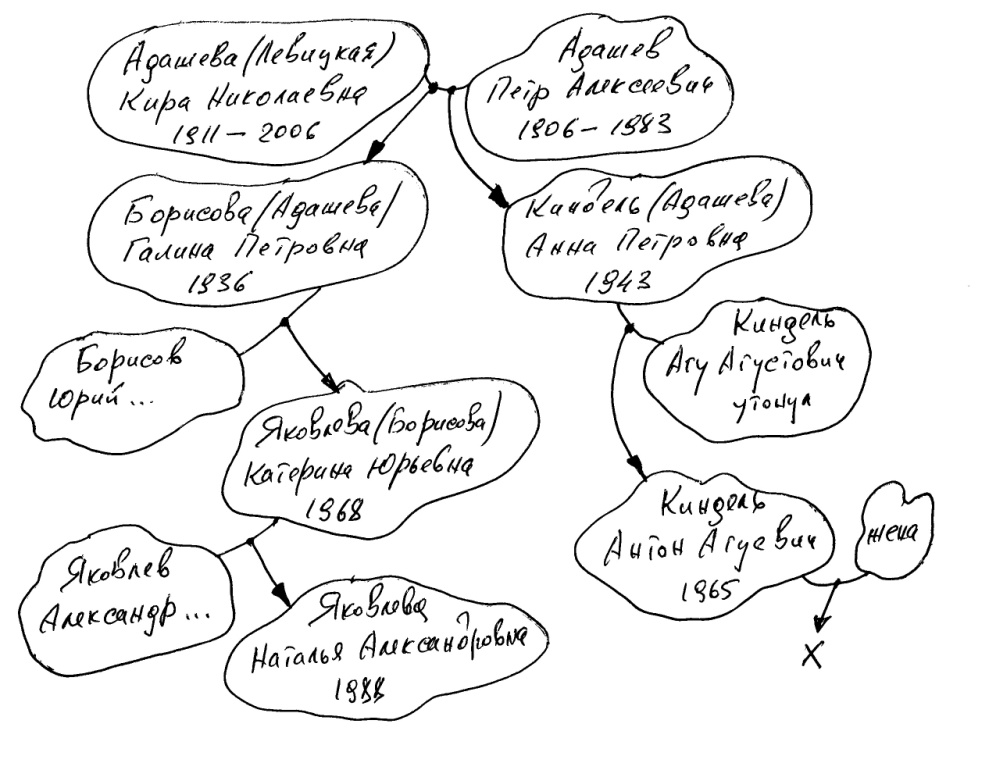 Адашева (Левицкая)
Кира Николаевна
1911 – 2006
Адашев
Петр Алексеевич
1906 – 1983
Борисова (Адашева)
Галина Петровна
1936
Киндель (Адашева)
Анна Петровна
1943
Борисов
Юрий ...
Киндель
Агу Агустович
утонул
Яковлева (Борисова)
Катерина Юрьевна
1968
Киндель
Антон Агуевич
1965
жена
Яковлев
Александр ...
Яковлева
Наталья Александровна
1988
X